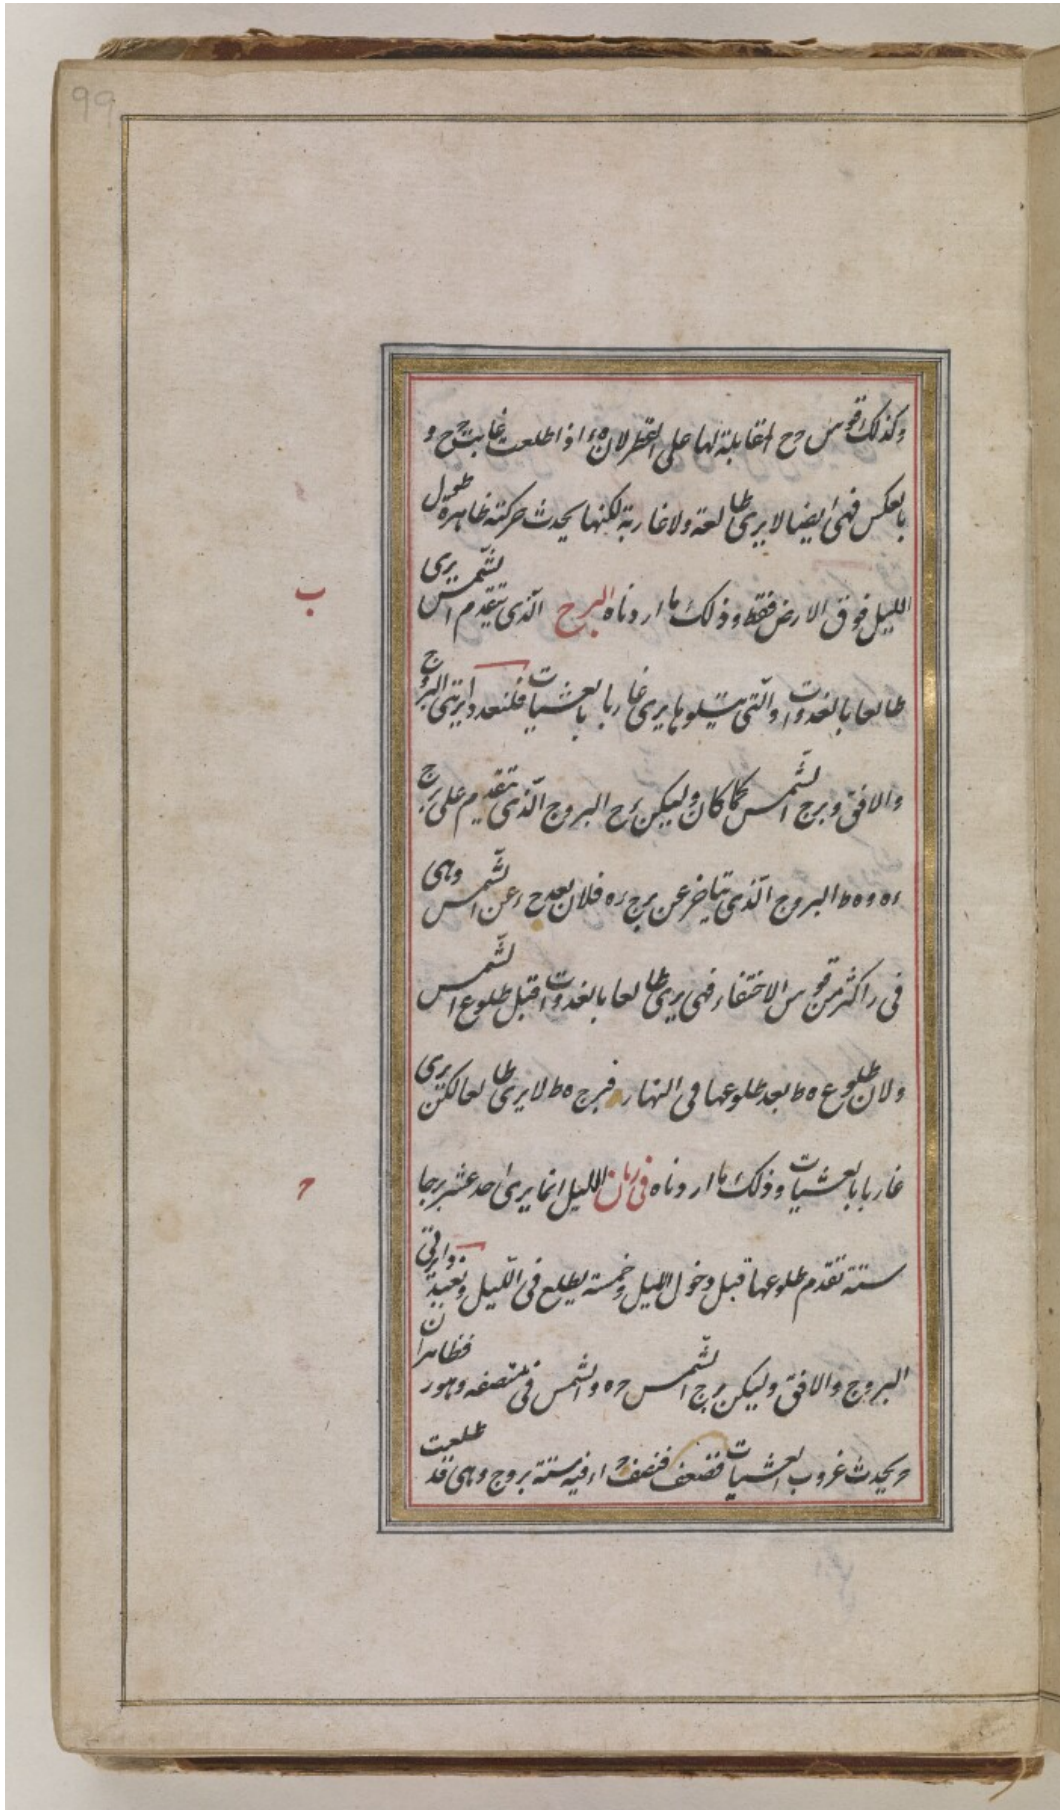 99
وكذلك قوس حح المقابلة لها على القطر لان ه ء اذا طلعت غابت حح و
بالعكس فهى ايضا لا يرى طالعة ولا غاربة لكنها يحدث حركته ظاهرة طول
الليل فوق الارض فقط وذلك ما اردناه البرج الذى يتقدم الشمس يرى
ب
طالعا بالغدوات والتى يتلوها يرى غاربا بالعشيات فلنعد دايرتى البروج
والافق وبرج الشمس كما كان وليكن ءح البروج الذى يتقدم على برج
ءه وه ط البروج الذى يتاخر عن برج ءه فلان بعد ح ء عن الشمس وهى
فى ر اكثر من قوس الاختفاء فهى يرى طالعا بالغدوات قبل طلوع الشمس
ولان طلوع ه ط بعد طلوعها فى النهار فبرج ه ط لا يرى طالعا لكن يرى
غاربا بالعشيات وذلك ما اردناه فى زمان الليل انما يرى احد عشر برجا
ح
ستة تقدم طلوعها قبل دخول الليل وخمسة يطلع فى الليل ونعيد دوايرتى
البروج والافق وليكن برج الشمس حه والشمس فى منتصفه وهو ر فظاهر ان
ح يحدث غروب العشيات فنصف ح ا ء فيه ستة بروج وهى قد طلعت